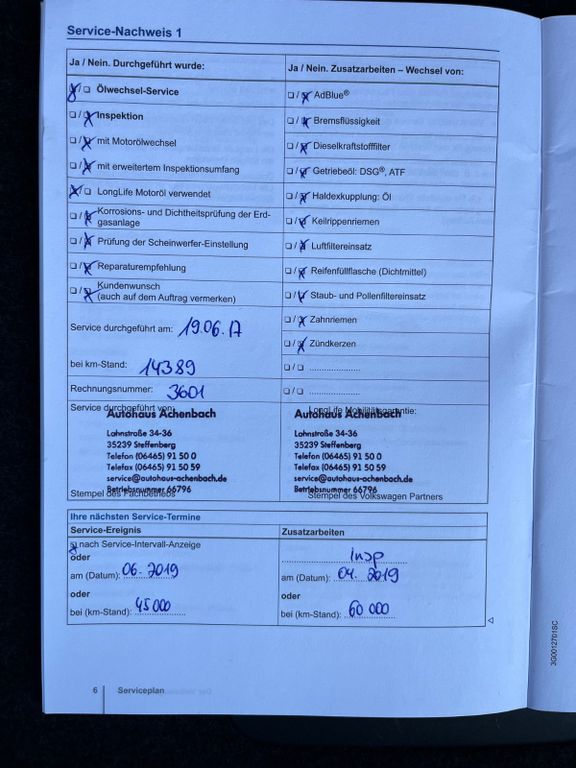 Service-Nachweis 1
Ja / Nein. Durchgeführt wurde:
Ja / Nein. Zusatzarbeiten – Wechsel von:
Ölwechsel-Service
AdBlue®
Inspektion
Bremsflüssigkeit
mit Motorölwechsel
Dieselkraftstofffilter
mit erweitertem Inspektionsumfang
Getriebeöl: DSG®, ATF
LongLife Motoröl verwendet
Haldexkupplung: Öl
Korrosions- und Dichtheitsprüfung der Erd-
gasanlage
Keilrippenriemen
Prüfung der Scheinwerfer-Einstellung
Luftfiltereinsatz
Reparaturempfehlung
Reifenfüllflasche (Dichtmittel)
Kundenwunsch
(auch auf dem Auftrag vermerken)
Staub- und Pollenfiltereinsatz
Zahnriemen
Zündkerzen
Service durchgeführt am: 19.06.17
bei km-Stand: 14389
Rechnungsnummer: 3601
Service durchgeführt von:
Autohaus Achenbach
Lahnstraße 34-36
35239 Steffenberg
Telefon (06465) 91 50 0
Telefax (06465) 91 50 59
service@autohaus-achenbach.de
Betriebsnummer 66796
Stempel des Fachbetriebs
LongLife Mobilitätsgarantie:
Autohaus Achenbach
Lahnstraße 34-36
35239 Steffenberg
Telefon (06465) 91 50 0
Telefax (06465) 91 50 59
service@autohaus-achenbach.de
Betriebsnummer 66796
Stempel des Volkswagen Partners
Ihre nächsten Service-Termine
Service-Ereignis
Zusatzarbeiten
nach Service-Intervall-Anzeige
oder
am (Datum): 06. 2019
oder
bei (km-Stand): 45000
Insp
am (Datum): 04. 2019
oder
bei (km-Stand): 60 000
6 Serviceplan
3G0012701SC